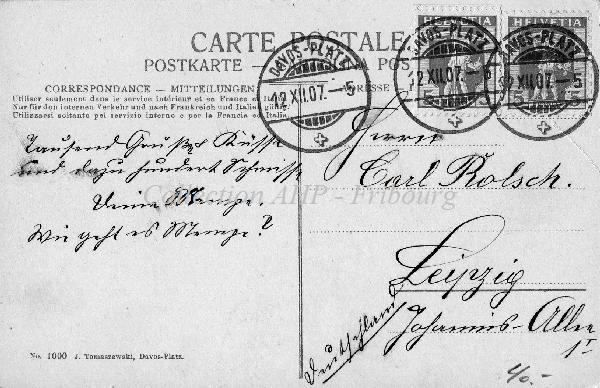 CARTE POSTALE
POSTKARTE
CORRESPONDANCE — MITTEILUNGEN
Utiliser seulement dans le service intérieur et en France et
Nur für den internen Verkehr und nach Frankreich und Italien
Utilizzarsi soltanto pei servizio interno e per la Francia e Italia
HELVETIA
HELVETIA
DAVOS-PLATZ
12.XII.07.—5
DAVOS-PLATZ
12.XII.07.
DAVOS-PLATZ
12.XII.07.—5
Tausend Grüße Küsse
und dazu hundert
Deine
Wie geht es
Herrn
Carl Rolsch.
Leipzig
Johannis-Allee
Deutschland
Collection AHP - Fribourg
No. 1000 J. Tomaszewski, Davos-Platz.